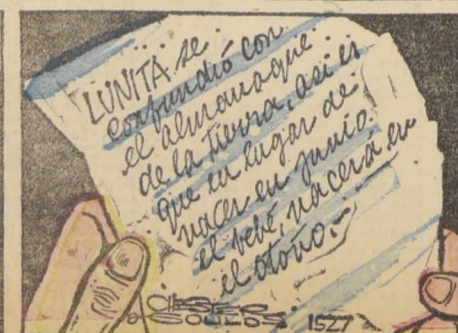 LUNITA se
confundió con
el almanaque
de la tierra, así es
que en lugar de
nacer en junio.
el bebé, nacerá en
el otoño.-
1527